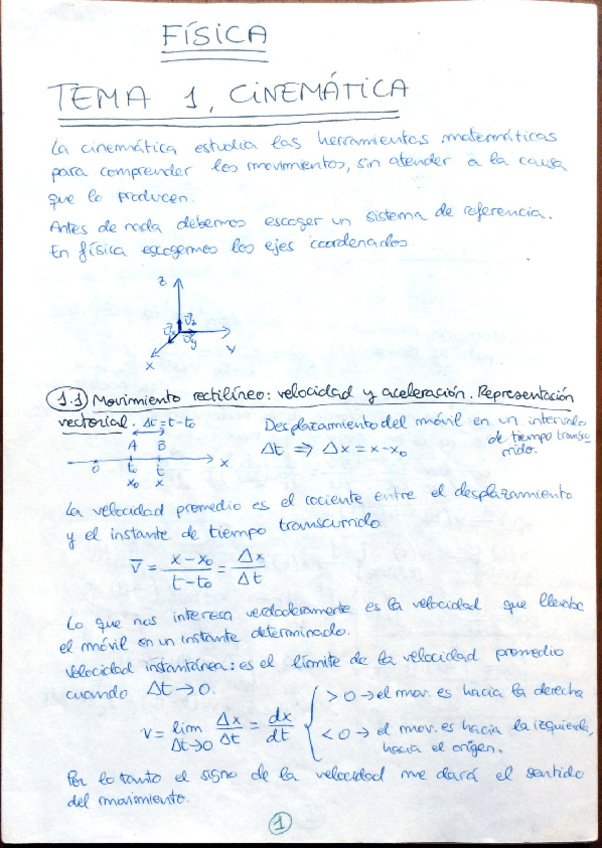 FÍSICA
TEMA 1, CINEMÁTICA
La cinemática estudia las herramientas matemáticas
para comprender los movimientos, sin atender a la causa
que lo producen.
Antes de nada debemos escoger un sistema de referencia.
En física escogemos los ejes coordenados.
z
v⃗z
v⃗x
v⃗y
y
x
1.1) Movimiento rectilíneo: velocidad y aceleración. Representación
vectorial. Δt=t-t₀
Desplazamiento del móvil en un intervalo
de tiempo transcu-
rrido.
Δt ⇒ Δx = x-x₀
A B
0 t₀ t x
x₀ x
La velocidad promedio es el cociente entre el desplazamiento
y el instante de tiempo transcurrido.
v̅ = (x-x₀)/(t-t₀) = Δx/Δt
Lo que nos interesa verdaderamente es la velocidad que llevaba
el móvil en un instante determinado.
Velocidad instantánea: es el límite de la velocidad promedio
cuando Δt→0.
v = lim Δt→0 Δx/Δt = dx/dt
>0 → el mov. es hacia la derecha
<0 → el mov. es hacia la izquierda,
hacia el origen.
Por lo tanto el signo de la velocidad me dará el sentido
del movimiento.
1